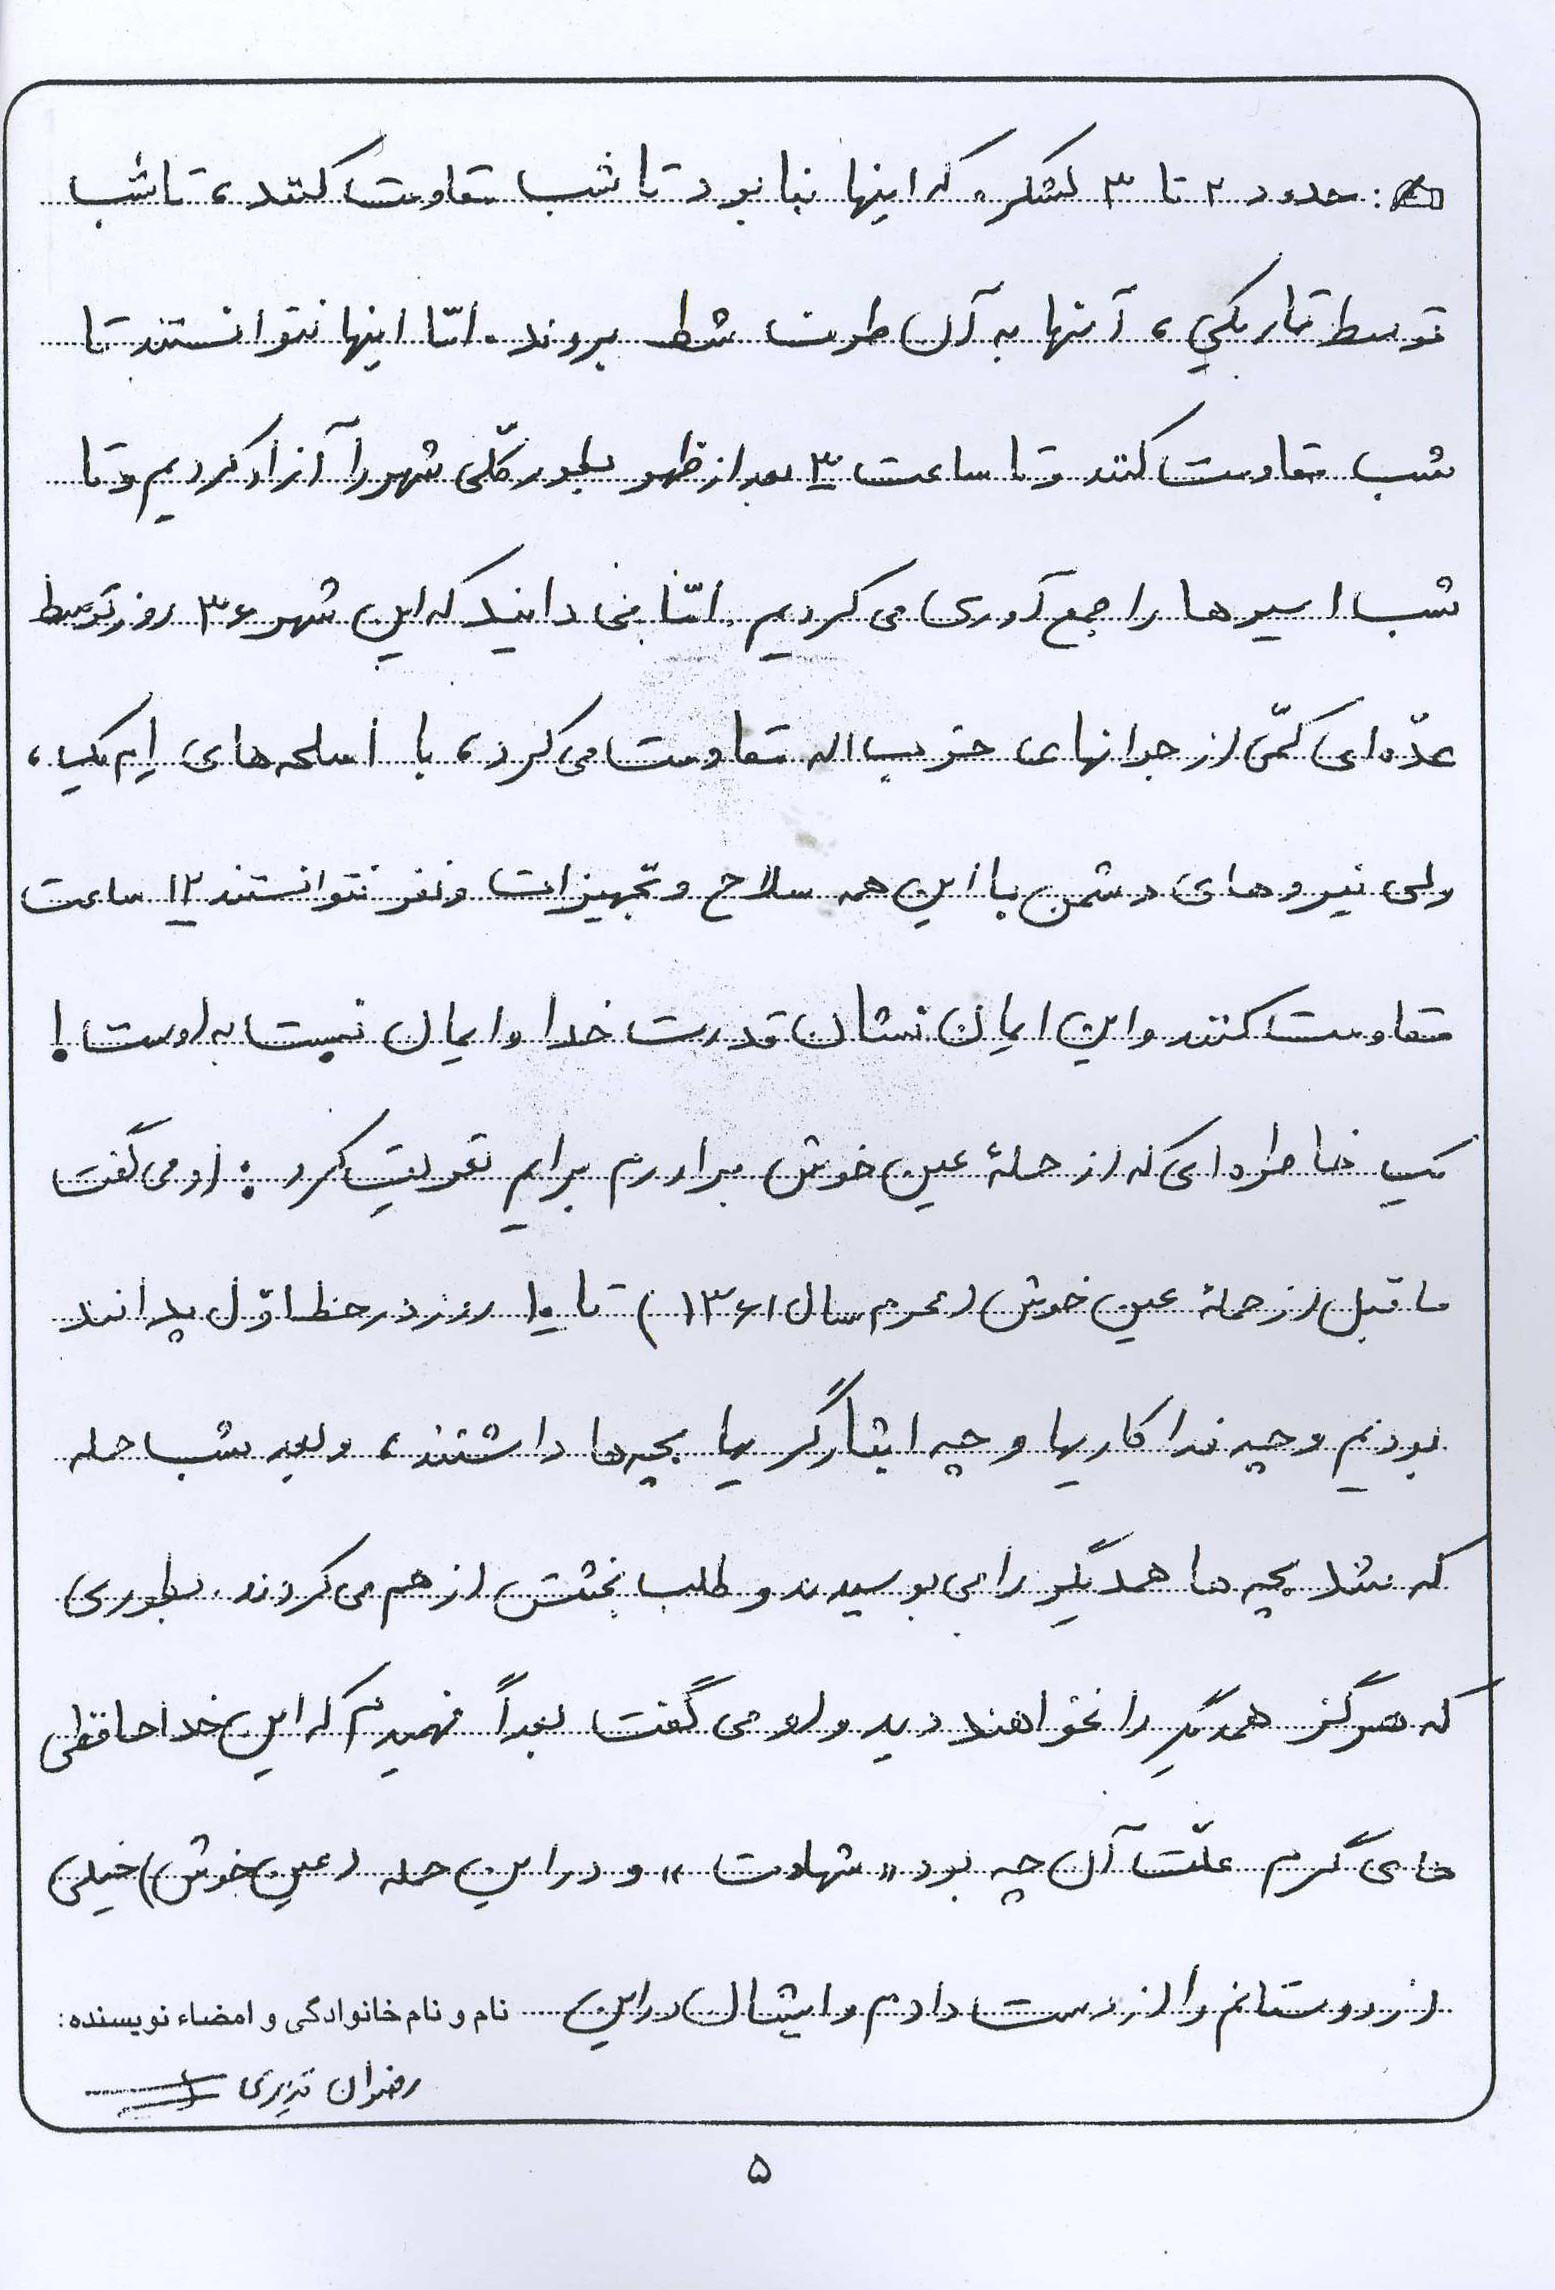 ✍: حدود ۲ تا ۳ لشکر. که اینها بنا بود تا شب مقاومت کنند، تا شب
توسط تاریکی، آنها به آن طرف شط بروند. امّا اینها نتوانستند تا
شب مقاومت کنند و تا ساعت ۳ بعد از ظهر بطور کلّی شهر را آزاد کردیم و تا
شب اسیرها را جمع آوری می کردیم. امّا می دانید که این شهر ۳۶ روز توسط
عدّه ای کمّی از جوانهای حزب اله مقاومت می کرد، با اسلحه های ام یک،
ولی نیروهای دشمن با این همه سلاح و تجهیزات و نفر نتوانستند ۱۲ ساعت
مقاومت کنند و این ایمان نشان قدرت خدا و ایمان نسبت به اوست!
یک خاطره ای که از حملهٔ عین خوش برادرم برایم تعریف کرد: او می گفت
ما قبل از حملهٔ عین خوش (محرم سال ۱۳۶۱) تا ۱۵ روز در خط اوّل پدافند
بودیم و چه فداکاریها و چه ایثارگریها بچه ها داشتند، و لیه شب حمله
که شد بچه ها همدیگر را می بوسیدند و طلب بخشش از هم می کردند. بطوری
که هرگز همدیگر را نخواهند دید و او می گفت بعداً فهمیدم که این خداحافظی
های گرم علّت آن چه بود «شهادت» و در این حمله (عین خوش) خیلی
از دوستانم را از دست دادم و ایشان در این
نام و نام خانوادگی و امضاء نویسنده:
رضوان
۵